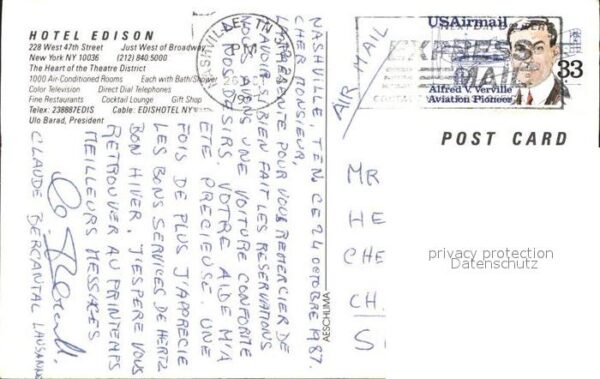 HOTEL EDISON
228 West 47th Street Just West of Broadway
New York NY 10036 (212) 840.5000
The Heart of the Theatre District
1000 Air-Conditioned Rooms Each with Bath/Shower
Color Television Direct Dial Telephones
Fine Restaurants Cocktail Lounge Gift Shop
Telex: 238887EDIS Cable: EDISHOTEL NY
Ulo Barad, President
NASHVILLE, TN
PM
USAirmail
33
EXPRESS
MAIL
Alfred V. Verville
Aviation Pioneer
AIR MAIL
POST CARD
NASHVILLE, TEN, CE 24 OCTOBRE 1987.
CHER MONSIEUR,
LA PRESENTE POUR VOUS REMERCIER DE
SAVOIR SI BIEN FAIT LES RESERVATIONS
NOUS AVONS UNE VOITURE CONFORME
A NOS DESIRS. VOTRE AIDE M'A
ETE PRECIEUSE. UNE
FOIS DE PLUS J'APPRECIE
LES BONS SERVICES DE HERTZ
BON HIVER, J'ESPERE VOUS
RETROUVER AU PRINTEMPS
MEILLEURS MESSAGES
CLAUDE BERCANTAL LAUSANNE
AESCHLIMA
MR
HE
CHE
CH.
S
privacy protection
Datenschutz